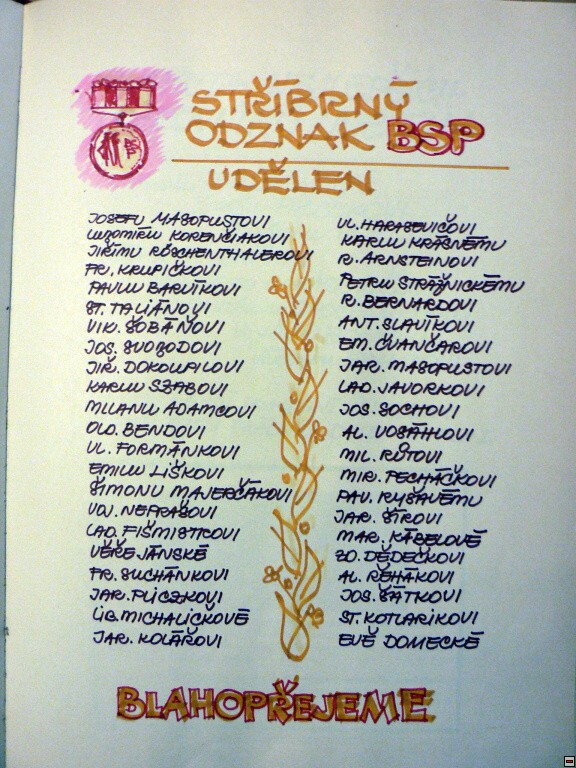 STŘÍBRNÝ
ODZNAK BSP
UDĚLEN
JOSEFU MASOPUSTOVI
LUBOMÍRU KORENČIAKOVI
JIŘÍMU RÖSCHENTHALEROVI
FR. KRUPIČKOVI
PAVLU BARVÍKOVI
ST. TALIÁNOVI
VIK. ŠOBÁŇOVI
JOS. SVOBODOVI
JIŘ. DOKOUPILOVI
KARLU SZABOVI
MILANU ADAMCOVI
OLD. BENDOVI
VL. FORMÁNKOVI
EMILU LIŠKOVI
ŠIMONU MAJERČÁKOVI
VOJ. NEPRAŠOVI
LAD. FIŠMISTROVI
VĚŘE JÁNSKÉ
FR. SUCHÁNKOVI
JAR. PLICZKOVI
LIB. MICHALIČKOVÉ
JAR. KOLÁŘOVI
VL. HARASEVIČOVI
KARLU KRÁSNÉMU
R. ARNSTEINOVI
PETRU STRÁŽNICKÉMU
R. BERNARDOVI
ANT. SLAVÍKOVI
EM. ČVANČAROVI
JAR. MASOPUSTOVI
LAD. JAVORKOVI
JOS. SOCHOVI
AL. VOSÁHLOVI
MIL. RŮTOVI
MIR. PECHÁČKOVI
PAV. RYŠAVÉMU
JAR. ŠÍROVI
MAR. KÁBELOVÉ
ZD. DĚDEČKOVI
AL. ŘEHÁKOVI
JOS. ŠÁTKOVI
ST. KOTLARIKOVI
EVĚ DOMECKÉ
BLAHOPŘEJEME